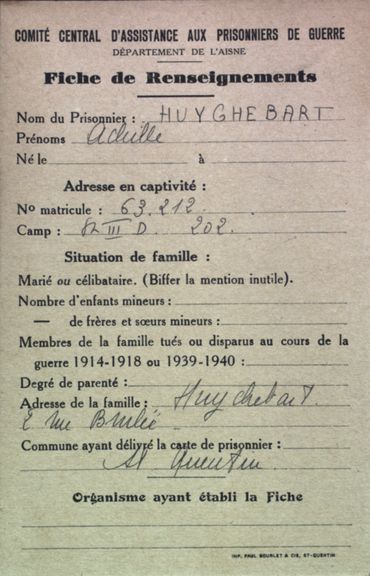 COMITÉ CENTRAL D'ASSISTANCE AUX PRISONNIERS DE GUERRE
DÉPARTEMENT DE L'AISNE
Fiche de Renseignements
Nom du Prisonnier : HUYGHEBART
Prénoms Achille
Né le à
Adresse en captivité :
No matricule : 63.212.
Camp : St III D 202.
Situation de famille :
Marié ou célibataire. (Biffer la mention inutile).
Nombre d'enfants mineurs :
— de frères et sœurs mineurs :
Membres de la famille tués ou disparus au cours de la
guerre 1914-1918 ou 1939-1940 :
Degré de parenté :
Adresse de la famille : Huyghebart.
2 rue Brulée
Commune ayant délivré la carte de prisonnier :
St Quentin
Organisme ayant établi la Fiche
IMP. PAUL BOURLET & CIE, ST-QUENTIN